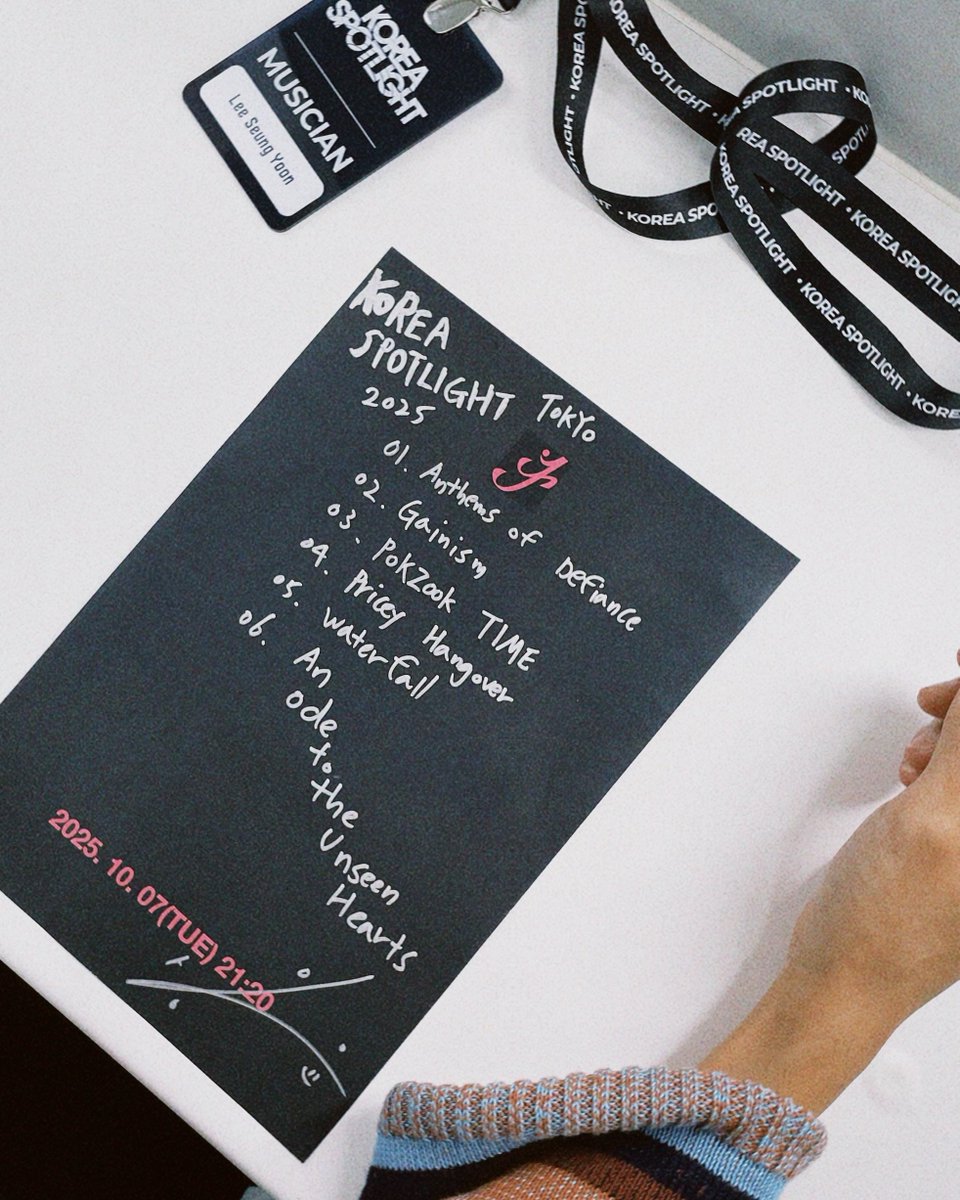 KOREA
SPOTLIGHT
MUSICIAN
Lee Seung Yoon
KOREA SPOTLIGHT • KOREA SPOTLIGHT
KOREA SPOTLIGHT • KOREA SPOTLIGHT • KORE
KOREA
SPOTLIGHT TOKYO
2025
01. Anthems of Defiance
02. Gainism
03. POKZOOK TIME
04. Pricey Hangover
05. Waterfall
06. An
ode
to
the
Unseen
Hearts
2025. 10. 07(TUE) 21:20